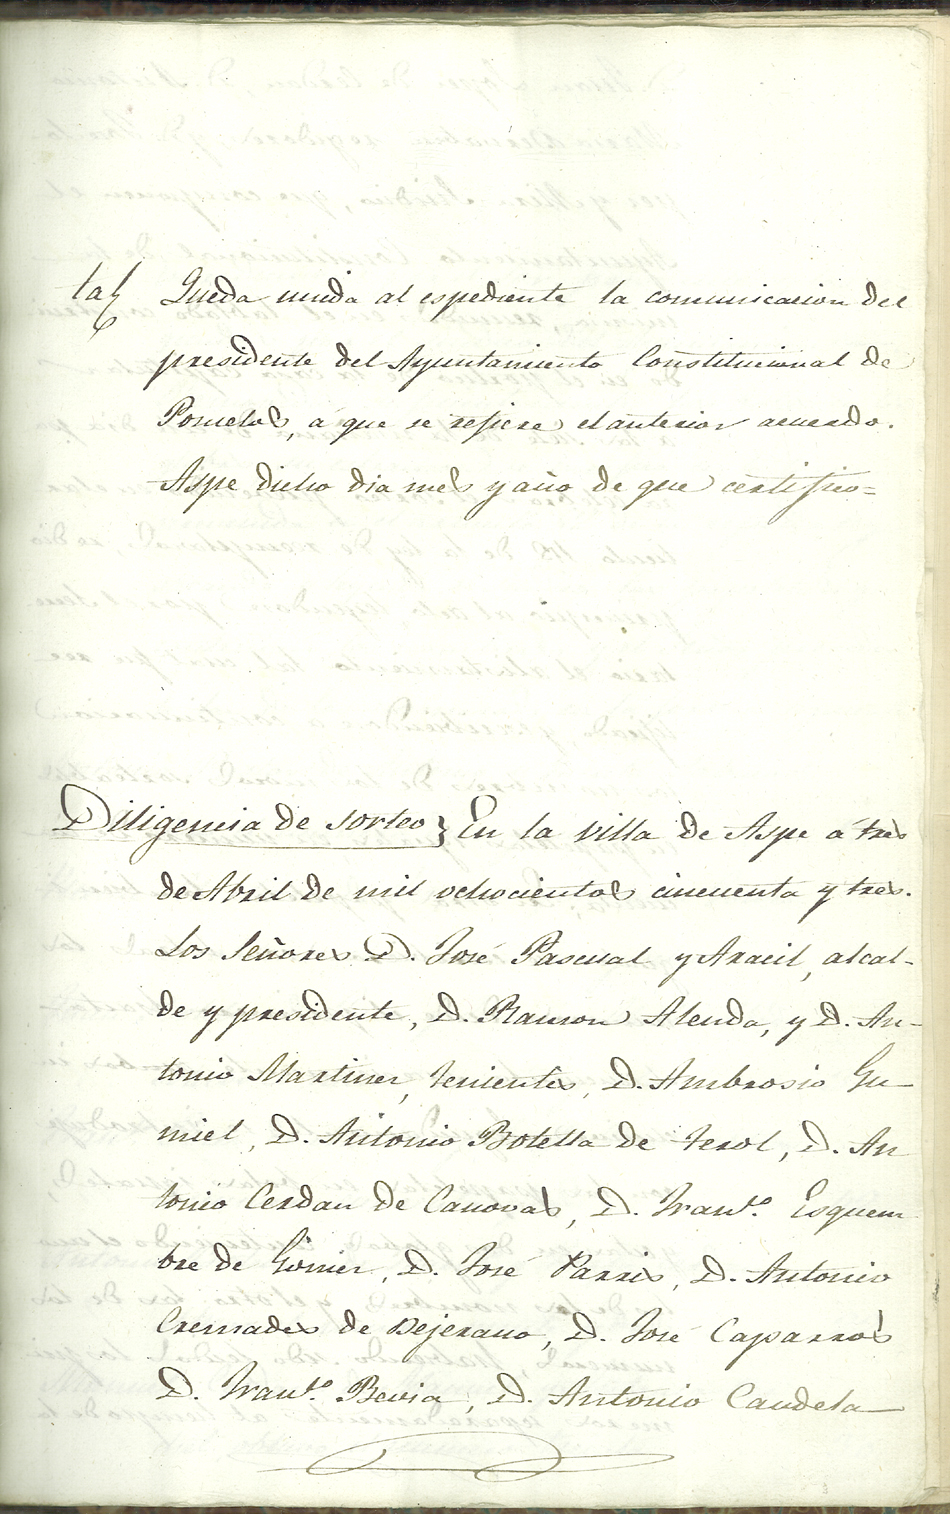 Queda unida al espediente la comunicacion del
presidente del Ayuntamiento Constitucional de
a que se refiere el anterior acuerdo.
Aspe dicho dia mes y año de que certifico=
Diligencia de sorteo} En la villa de Aspe á tres
de Abril de mil ochocientos cincuenta y tres.
Los Señores D. José Pascual y Aracil, alcal-
de y presidente, D. Ramon Alenda, y D. An-
tonio Martinez, tenientes, D. Ambrosio Gu-
miel, D. Antonio Botella de Terol, D. An
tonio Cerdan de Canovas, D. Franco. Esquem
bre de Giner, D. José Parres, D. Antonio
Cremades de Bejerano, D. José Caparros
D. Franco. Bevia, D. Antonio Candela